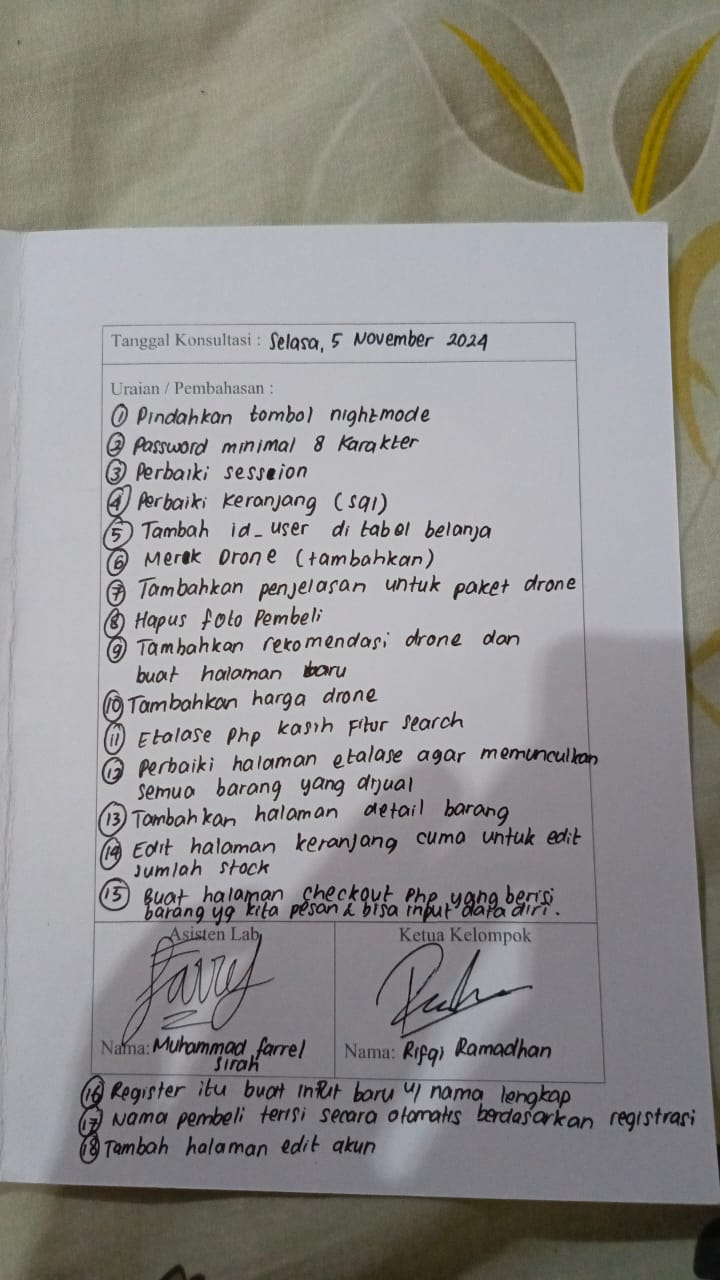 Tanggal Konsultasi : Selasa, 5 November 2024
Uraian / Pembahasan :
① Pindahkan tombol nightmode
② Password minimal 8 Karakter
③ Perbaiki session
④ Perbaiki Keranjang (sql)
⑤ Tambah id_user di tabel belanja
⑥ Merek Drone (tambahkan)
⑦ Tambahkan penjelasan untuk paket drone
⑧ Hapus foto Pembeli
⑨ Tambahkan rekomendasi drone dan
buat halaman baru
⑩ Tambahkan harga drone
⑪ Etalase php kasih Fitur search
⑫ Perbaiki halaman etalase agar memunculkan
semua barang yang dijual
⑬ Tambahkan halaman detail barang
⑭ Edit halaman keranjang cuma untuk edit
Jumlah stock
⑮ Buat halaman checkout php yang berisi
barang yg kita pesan & bisa input data diri.
Asisten Lab
Ketua Kelompok
Nama: Muhammad farrel
sirah
Nama: Rifqi Ramadhan
⑯ Register itu buat input baru u/ nama lengkap
⑰ Nama pembeli terisi secara otomatis berdasarkan registrasi
⑱ Tambah halaman edit akun